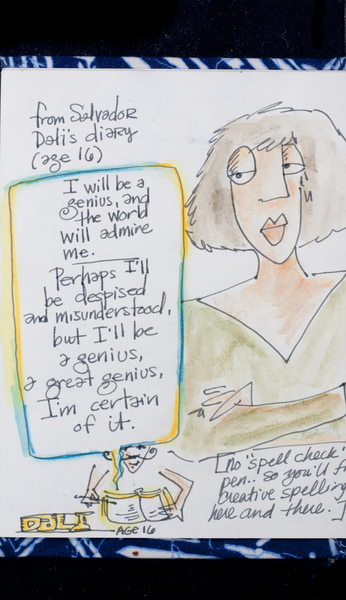 from Salvador
Dali's diary
(age 16)
I will be a
genius, and
the world
will admire
me.
Perhaps I'll
be despised
and misunderstood,
but I'll be
a genius,
a great genius,
I'm certain
of it.
[no "spell check"
pen.. so you'll f
creative spelling
here and there.]
DALI
AGE 16